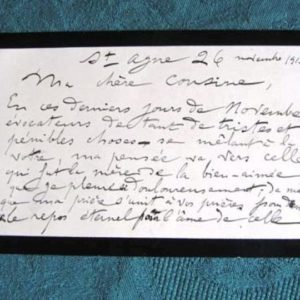 St Agne 26 novembre
Ma chère cousine,
En ces derniers jours de Novembre
évocateurs de tant de tristes et
pénibles choses - se mêlant à la
votre, ma pensée va vers celle
qui fut la mère de la bien-aimée
que je pleure douloureusement, de
que ma prière s'unit à vos prières pour
le repos éternel pour l'âme de celle